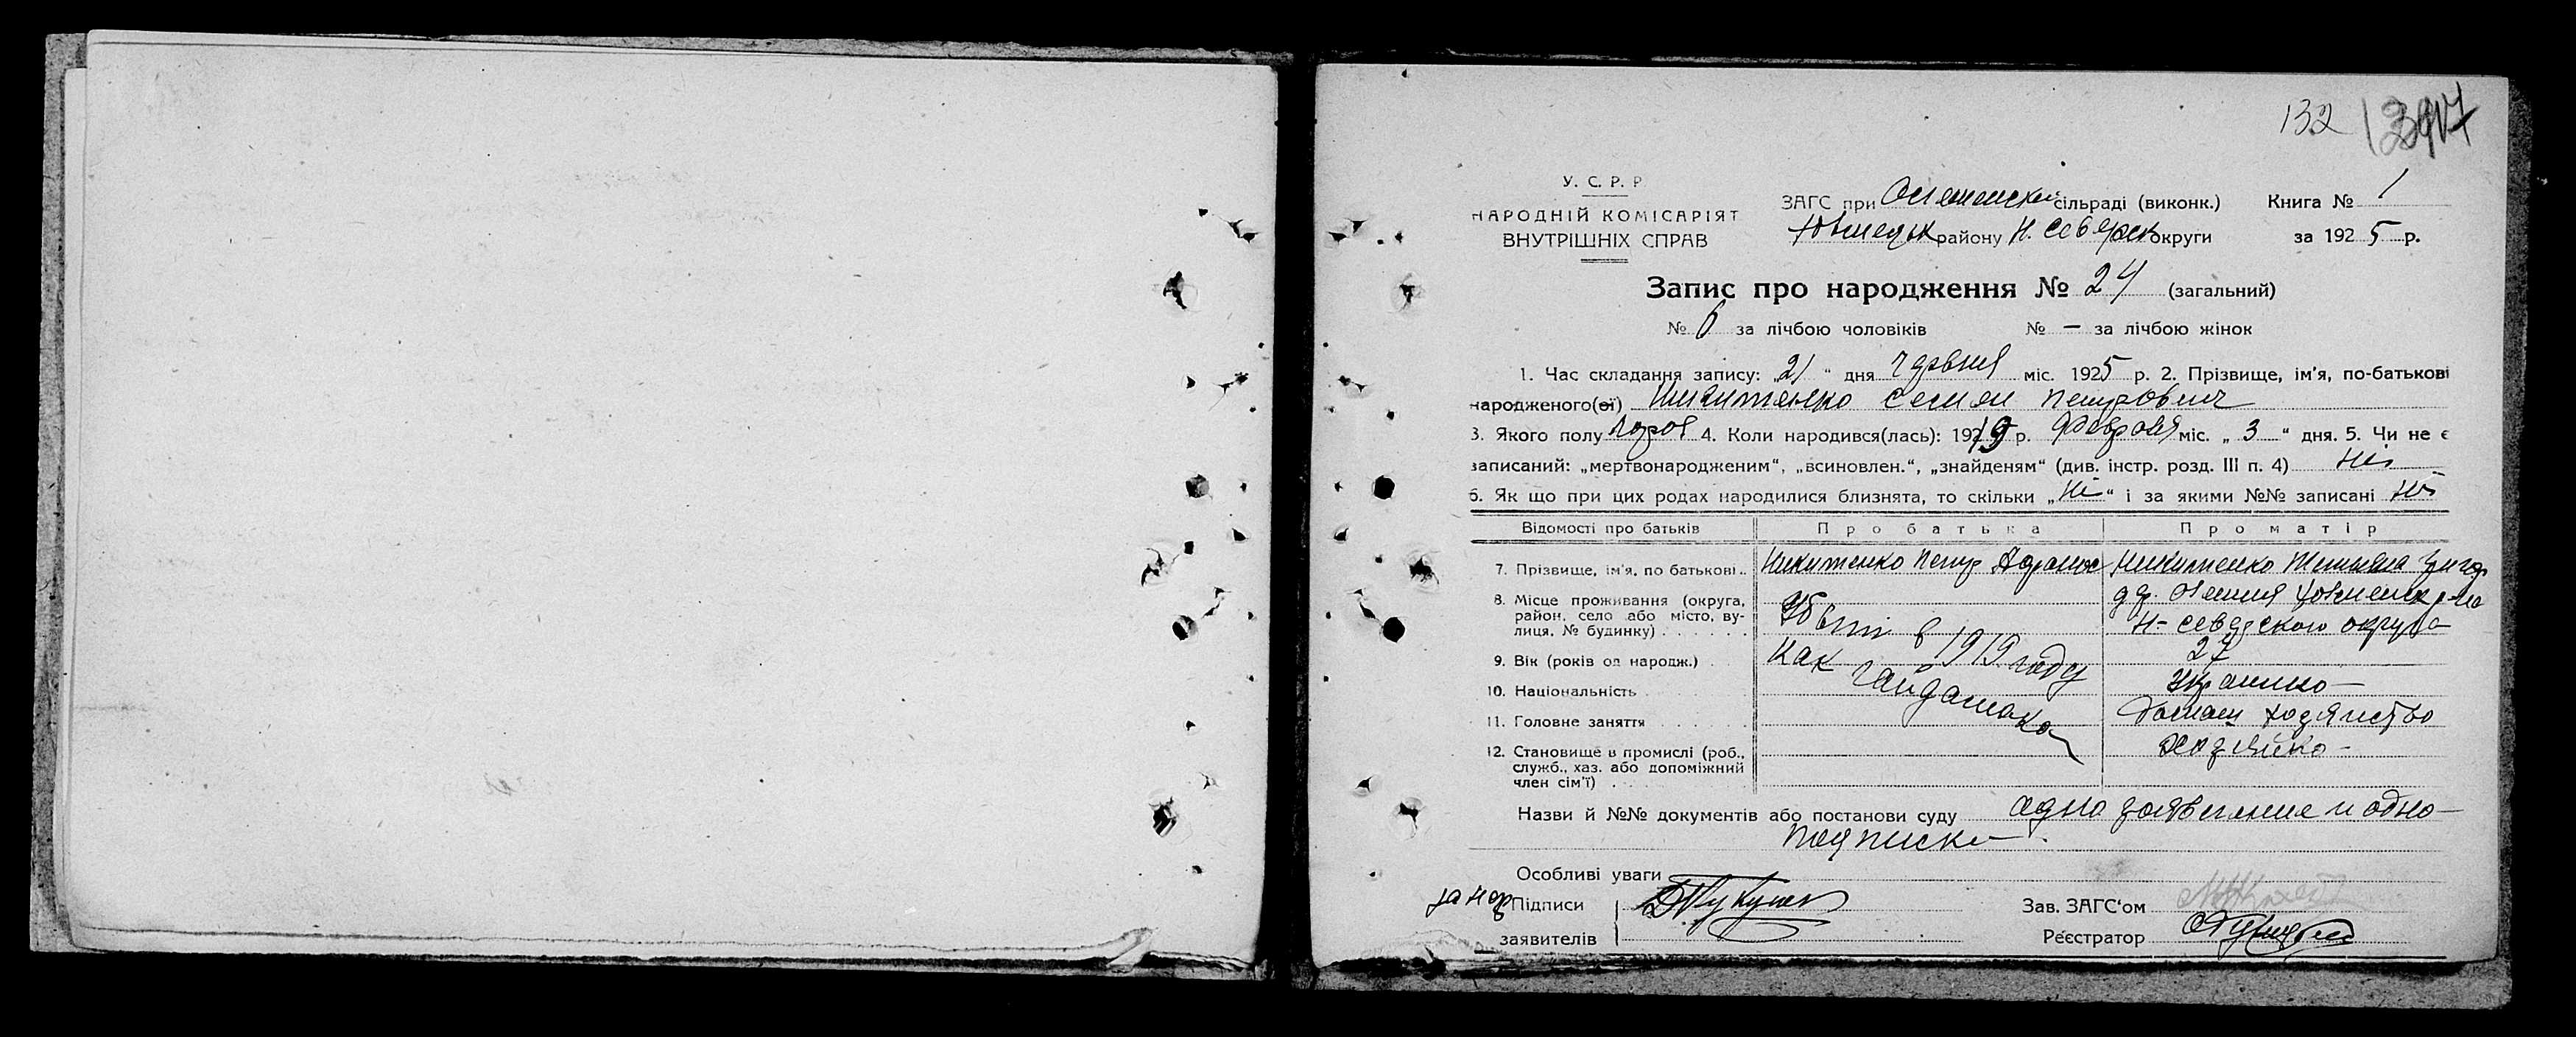 132
У. С. Р. Р
НАРОДНІЙ КОМІСАРІЯТ
ВНУТРІШНІХ СПРАВ
ЗАГС при сільраді (виконк.) Книга № 1
району Н. Северск округи за 1925 р.
Запис про народження № 24 (загальний)
№ 6 за лічбою чоловіків № — за лічбою жінок
1. Час складання запису: „21“ дня червня міс. 1925 р. 2. Прізвище, ім'я, по-батькові
народженого(ої) Никитенко Семен Петрович
3. Якого полу 4. Коли народився(лась): 1919 р. Февраля міс. „3“ дня. 5. Чи не є
записаний: „мертвонародженим“, „всиновлен.“, „знайденям“ (див. інстр. розд. III п. 4) Ні
6. Як що при цих родах народилися близнята, то скільки „Ні“ і за якими №№ записані Ні
Відомості про батьків Про батька Про матір
7. Прізвище, ім'я, по батькові.. Никитенко Петр Никитенко Татьяна Григор
8. Місце проживання (округа, район, село або місто, вулиця, № будинку)
Н-северского округа
Убит в 1919 году
как гайдамака
9. Вік (років од народж.) 27
10. Національність Украинка
11. Головне заняття Домаш хозяйство
12. Становище в промислі (роб., служб., хаз. або допоміжний член сім'ї) хозяйка
Назви й №№ документів або постанови суду одно заявление и одна
подписка
Особливі уваги
Підписи
заявителів
Зав. ЗАГС'ом
Реєстратор